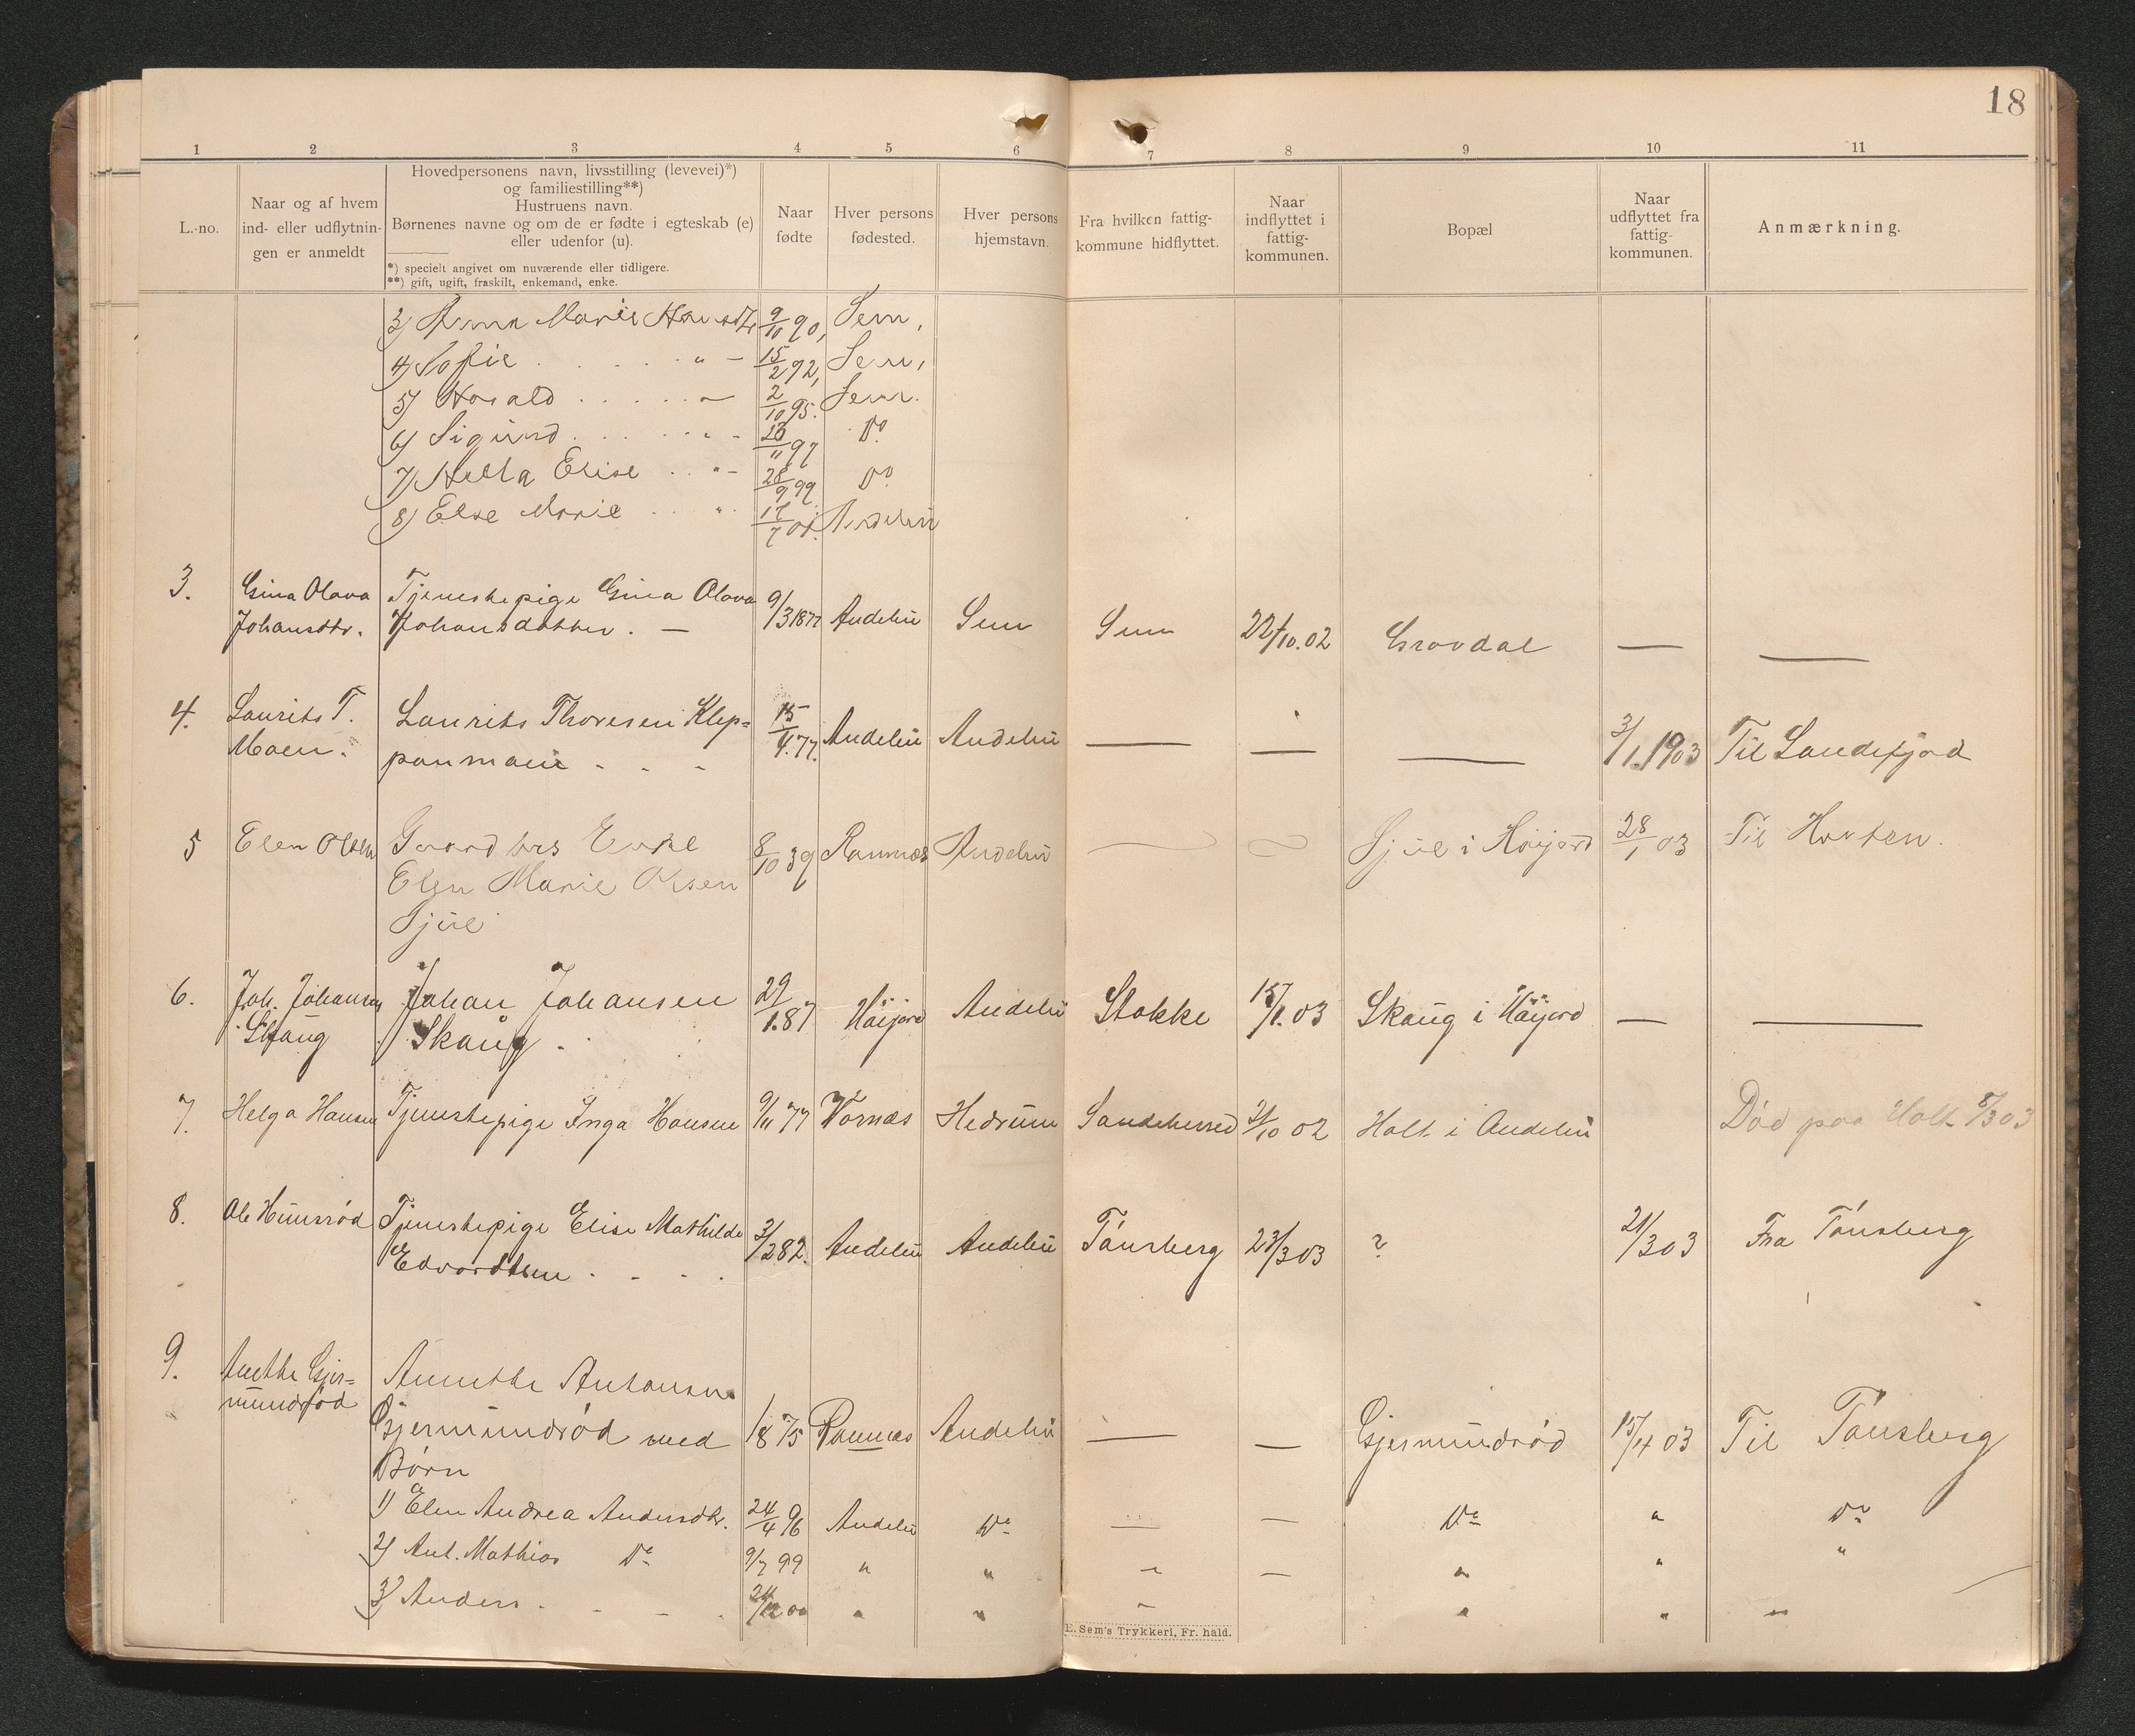 18
1 2 3 4 5 6 7 8 9 10 11
L.-no.
Naar og af hvem
ind- eller udflytnin-
gen er anmeldt
Hovedpersonens navn, livsstilling (levevei)*)
og familiestilling**)
Hustruens navn.
Børnenes navne og om de er fødte i egteskab (e)
eller udenfor (u).
*) specielt angivet om nuværende eller tidligere.
**) gift, ugift, fraskilt, enkemand, enke.
Naar
fødte
Hver persons
fødested.
Hver persons
hjemstavn.
Fra hvilken fattig-
kommune hidflyttet.
Naar
indflyttet i
fattig-
kommunen.
Bopæl
Naar
udflyttet fra
fattig-
kommunen.
Anmærkning.
3) Anna Marie 9/10 90, Sem,
4) Sofie . . . . " – 15/2 92, Sem,
5) Harald . . . . . – 2/10 95. Sem.
6) Sigurd . . . . " - /11 97 Do
7) Hella Elise . . "– 28/9 99 Do
8) Else Marie . . " 17/7 01. Andebu
3. Gina Olava Tjenestepige Gina Olava 9/3 1877 Andebu Sem Sem 22/10.02 Gravdal — —
Johansdtr. Johansdatter. —
4. Laurits T. Laurits Thoresen Klep= 15/4.77. Andebu Andebu — — — 3/1.1903 Til Sandefjord
Moen. panmoen - - -
5 Elen Olsen Gaardbrs Enke 8/10 39 Ramnæs Andebu — — Sjue i Høijord 28/1 03 Til Horten.
Elen Marie Olsen
Sjue
6. Joh. Johansen Johan Johansen 29/1.87 Høijord Andebu Stokke 15/1.03 Skaug i Høijord — —
Skaug Skaug -
7. Helga Hansen Tjenestepige Inga Hansen 9/11 77 Vornæs Hedrum Sandeherred 21/10 02 Holt i Andebu Død paa Holt 8/3 03
8. Ole Tjenestepige Elise Mathilde 3/2 82. Andebu Andebu Tønsberg 23/3 03 ? 21/3 03 Fra Tønsberg
Edvardtsen - - - .
9. Anethe Gjer= Annethe Antonsen
mundrød Gjermundrød med 1/8 75 Ramnæs Andebu — — Gjermundrød 15/4 03 Til Tønsberg
Børn
1) Elen Andrea Andersdtr. 24/4 96 Andebu Do — — Do " Do
2) Ant. Mathias Do 9/7 99 " " – – " " "
3) Anders - - - . 24/12 00 " " – " " "
E. Sem's Trykkeri, Fr. hald.